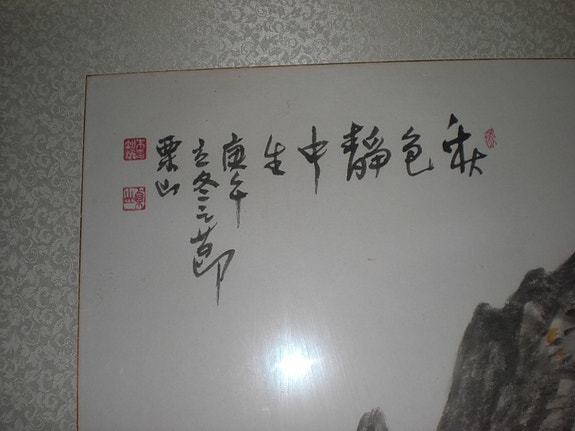 秋色靜中生
庚午
立冬之節
栗山